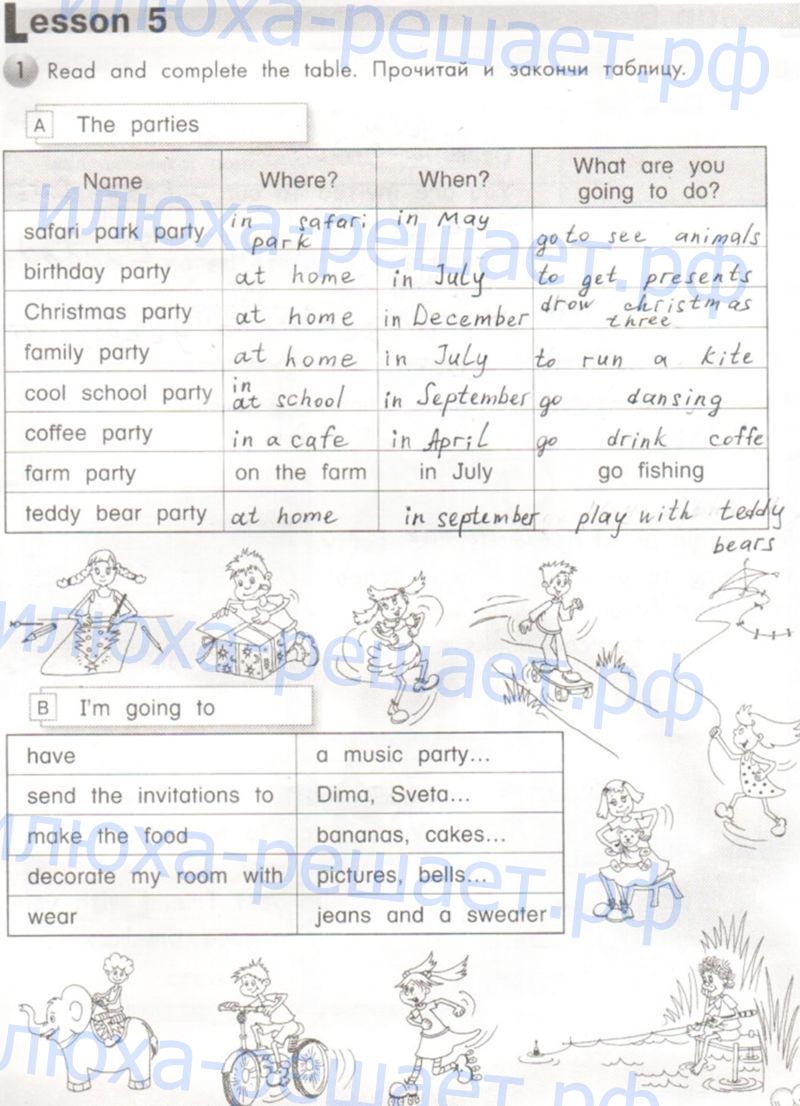 Lesson 5
1 Read and complete the table. Прочитай и закончи таблицу.
A The parties
Name Where? When? What are you going to do?
safari park party in safari park in May go to see animals
birthday party at home in July to get presents
Christmas party at home in December drow christmas three
family party at home in July to run a kite
cool school party in at school in September go dansing
coffee party in a cafe in April go drink coffe
farm party on the farm in July go fishing
teddy bear party at home in september play with teddy bears
B I'm going to
have a music party...
send the invitations to Dima, Sveta...
make the food bananas, cakes...
decorate my room with pictures, bells...
wear jeans and a sweater
илюха-решает.рф
илюха-решает.рф
илюха-решает.рф
илюха-решает.рф
илюха-решает.рф